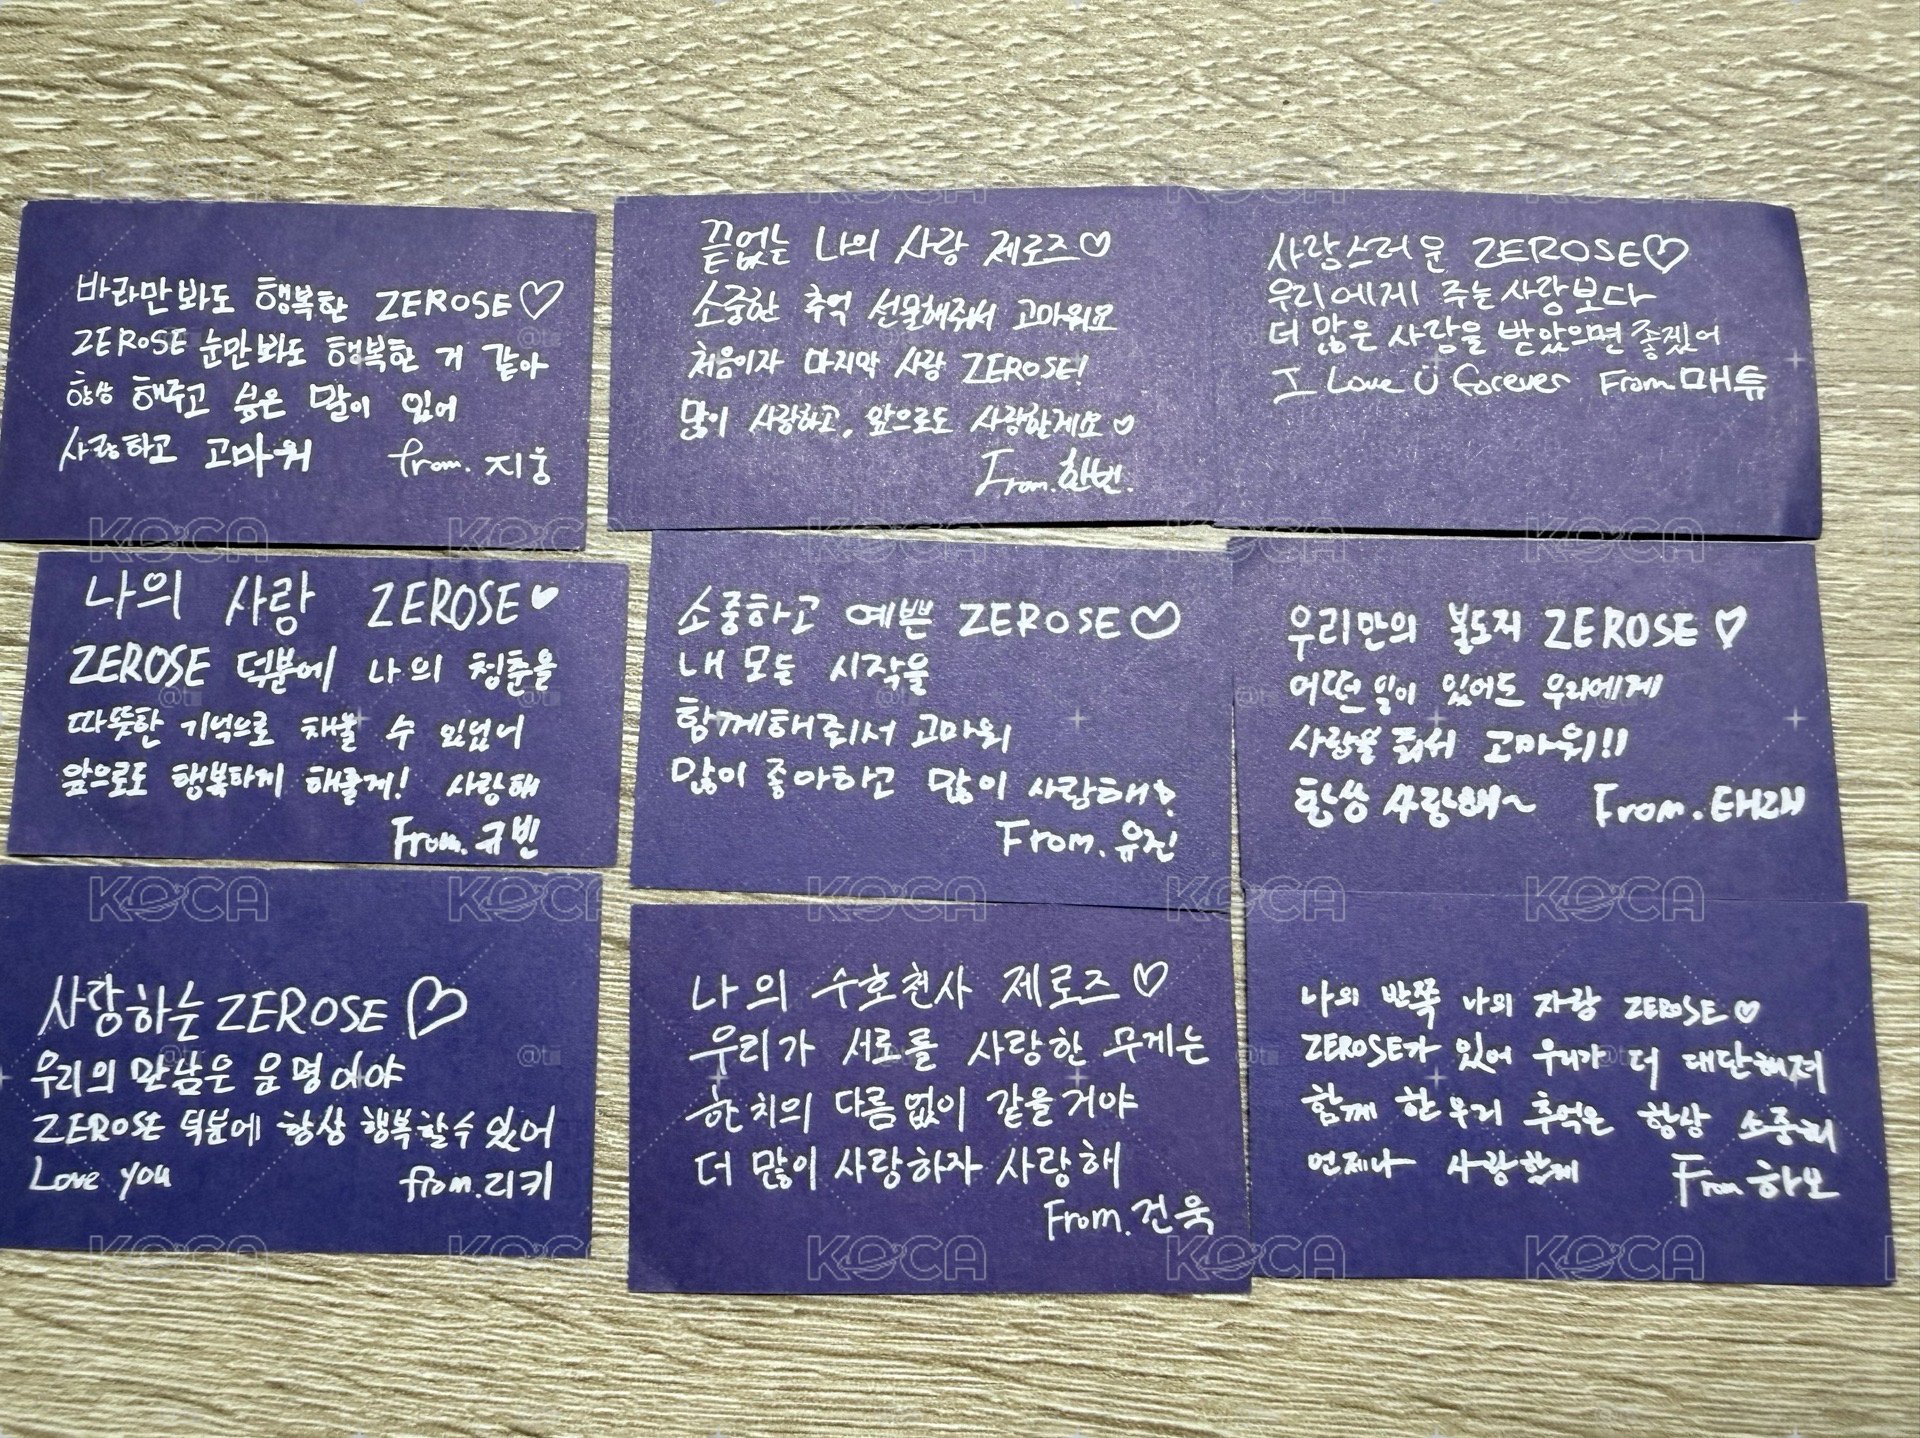 바라만 봐도 행복한 ZEROSE♡
ZEROSE 눈만 봐도 행복한 거 같아
항상 해주고 싶은 말이 있어
사랑하고 고마워 from. 지웅
끝없는 나의 사랑 제로즈♡
소중한 추억 선물해주셔서 고마워요
처음이자 마지막 사랑 ZEROSE!
많이 사랑하고, 앞으로도 사랑할게요♡
From. 한빈.
사랑스러운 ZEROSE♡
우리에게 주는 사랑보다
더 많은 사랑을 받았으면 좋겠어
I Love U forever From. 매튜
나의 사랑 ZEROSE♥
ZEROSE 덕분에 나의 청춘을
따뜻한 기억으로 채울 수 있었어
앞으로도 행복하게 해줄게! 사랑해
From. 규빈
소중하고 예쁜 ZEROSE♡
내 모든 시작을
함께해줘서 고마워
많이 좋아하고 많이 사랑해♡
From. 유진
우리만의 복도지 ZEROSE♡
어떤 일이 있어도 우리에게
사랑을 줘서 고마워!!
항상 사랑해~ From. 태래
사랑하는 ZEROSE♡
우리의 만남은 운명이야
ZEROSE 덕분에 항상 행복할 수 있어
Love you from. 리키
나의 수호천사 제로즈♡
우리가 서로를 사랑한 무게는
한 치의 다름없이 같을거야
더 많이 사랑하자 사랑해
From. 건욱
나의 반쪽 나의 자랑 ZEROSE♡
ZEROSE가 있어 우리가 더 대단해져
함께 한 우리 추억은 항상 소중해
언제나 사랑할게 From 하오
KOCA